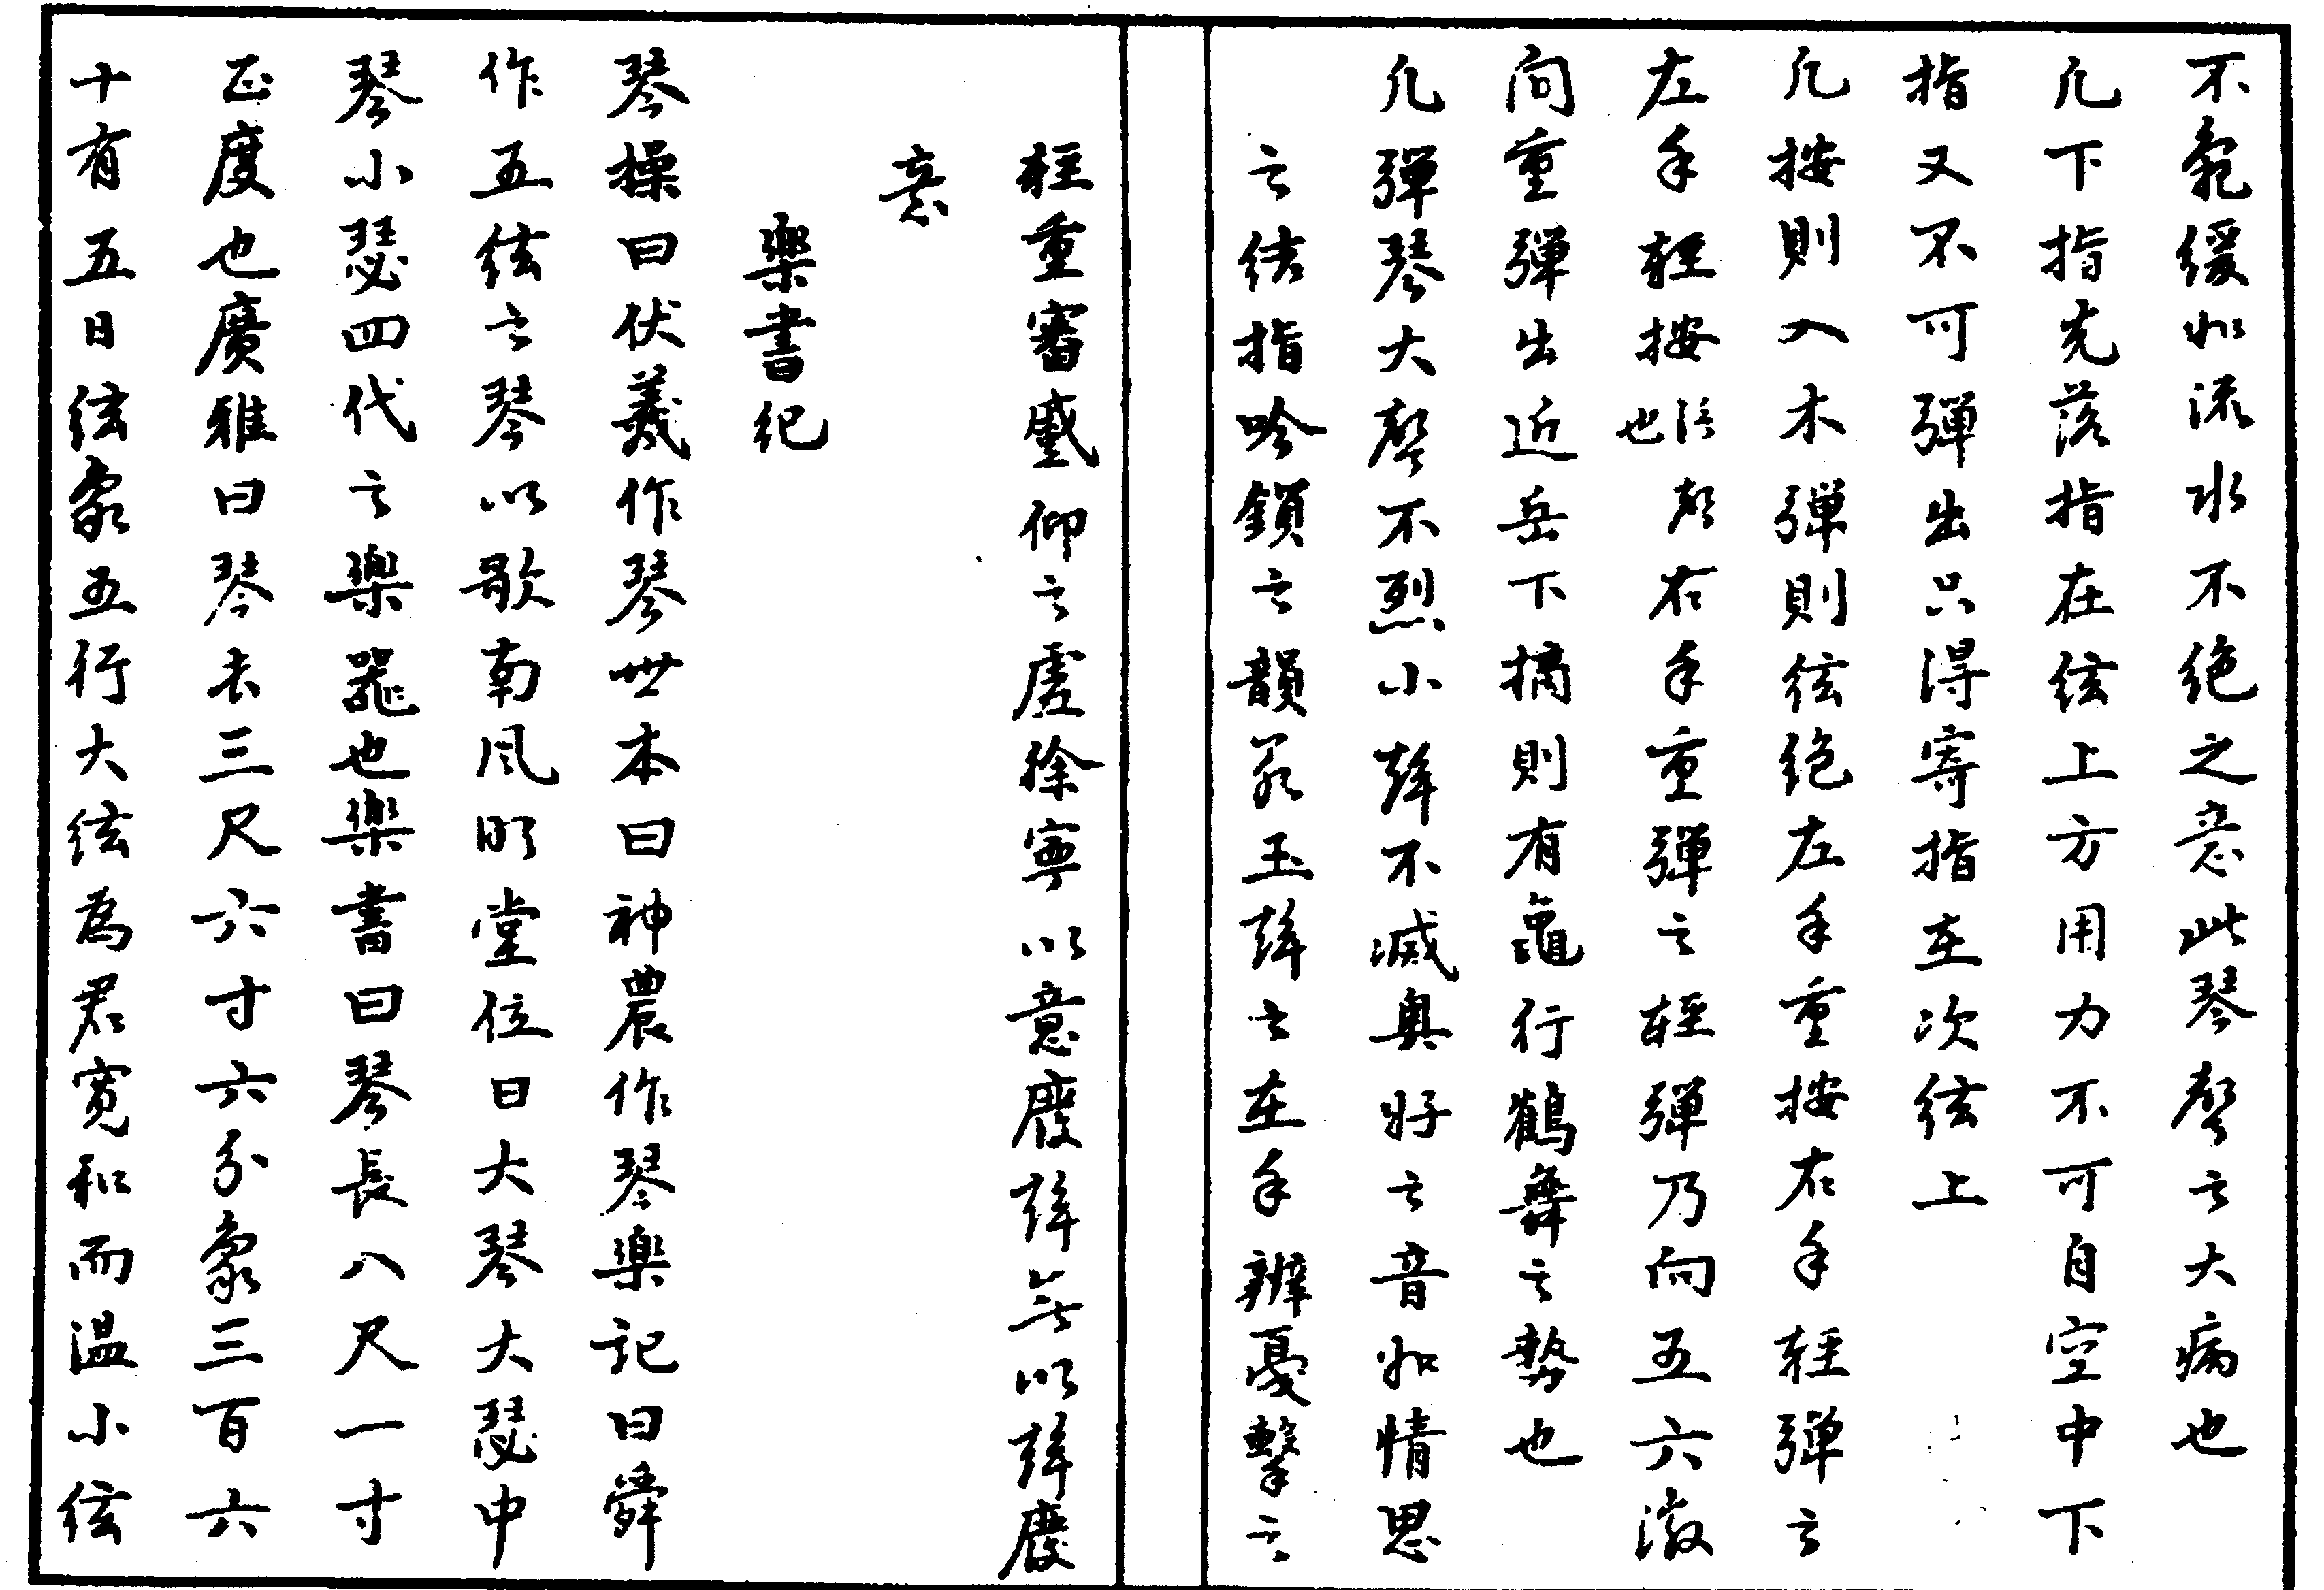 不亂緩如流水不絕之意此琴聲之大病也
凡下指先落指在弦上方用力不可自空中下
指又不可彈出只得寄指在次弦上
凡按則入木彈則弦絕左手重按右手輕彈之
左手輕按泛聲也右手重彈之輕彈乃向五六徽
向重彈出近岳下摘則有龜行鶴舞之勢也
凡彈琴大聲不烈小聲不滅與好之音如情思
之結指吟鎖之韻最玉聲之在手辨憂擊之
輕重審蹙仰之虛徐寧以意廢聲無以聲廢
意
樂書紀
琴操曰伏羲作琴世本曰神農作琴樂記曰舜
作五弦之琴以歌南風明堂位曰大琴大瑟中
琴小瑟四代之樂器也樂書曰琴長八尺一寸
正度也廣雅曰琴長三尺六寸六分象三百六
十有五日弦象五行大弦為君寬和而溫小弦